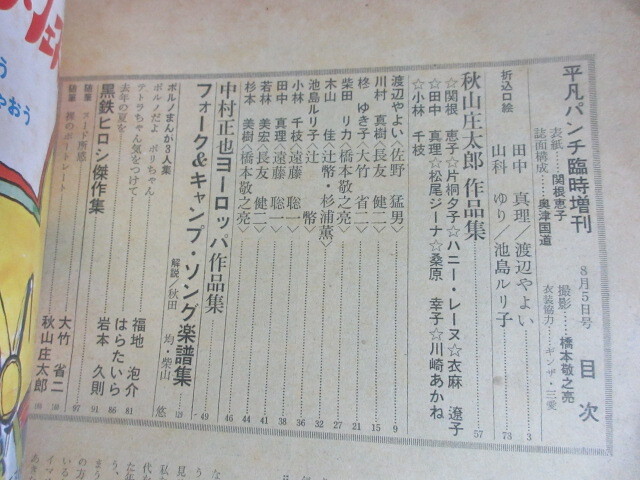 平凡パンチ臨時増刊 8月5日号 目次
表紙……関根恵子 撮影……橋本敬之亮
誌面構成……奥津国道 衣装協力……ギンザ・三愛
折込口絵
田中 真理/渡辺やよい 3
山科 ゆり/池島ルリ子 73
秋山庄太郎 作品集 57
☆関根 恵子☆片桐夕子☆ハニー・レーヌ☆衣麻 遼子
☆田中 真理☆松尾ジーナ☆桑原 幸子☆川崎あかね
☆小林 千枝
渡辺やよい〈佐野 猛男〉 9
川村 真樹〈長友 健二〉 15
柊 ゆき子〈大竹 省二〉 21
柴田 リカ〈橋本敬之亮〉 27
木山 佳〈辻幣・杉浦薫〉 32
池島ルリ子〈辻 幣〉
小林 千枝〈遠藤 聡一〉 36
田中 真理〈遠藤 聡一〉 38
若林 美宏〈長友 健二〉 41
杉本 美樹〈橋本敬之亮〉 44
中村正也ヨーロッパ作品集 46
フォーク&キャンプ・ソング楽譜集 49
解説/秋田 均・柴山 悠
ポルノまんが3人集
ポルノだよ ポリちゃん 福地 泡介 81
テトラちゃん気をつけて はらたいら 86
去年の夏を 岩本 久則 91
黒鉄ヒロシ傑作集 97
随筆 ヌード所感 大竹 省二
随筆 裸のポートレート 秋山庄太郎
う
やおう